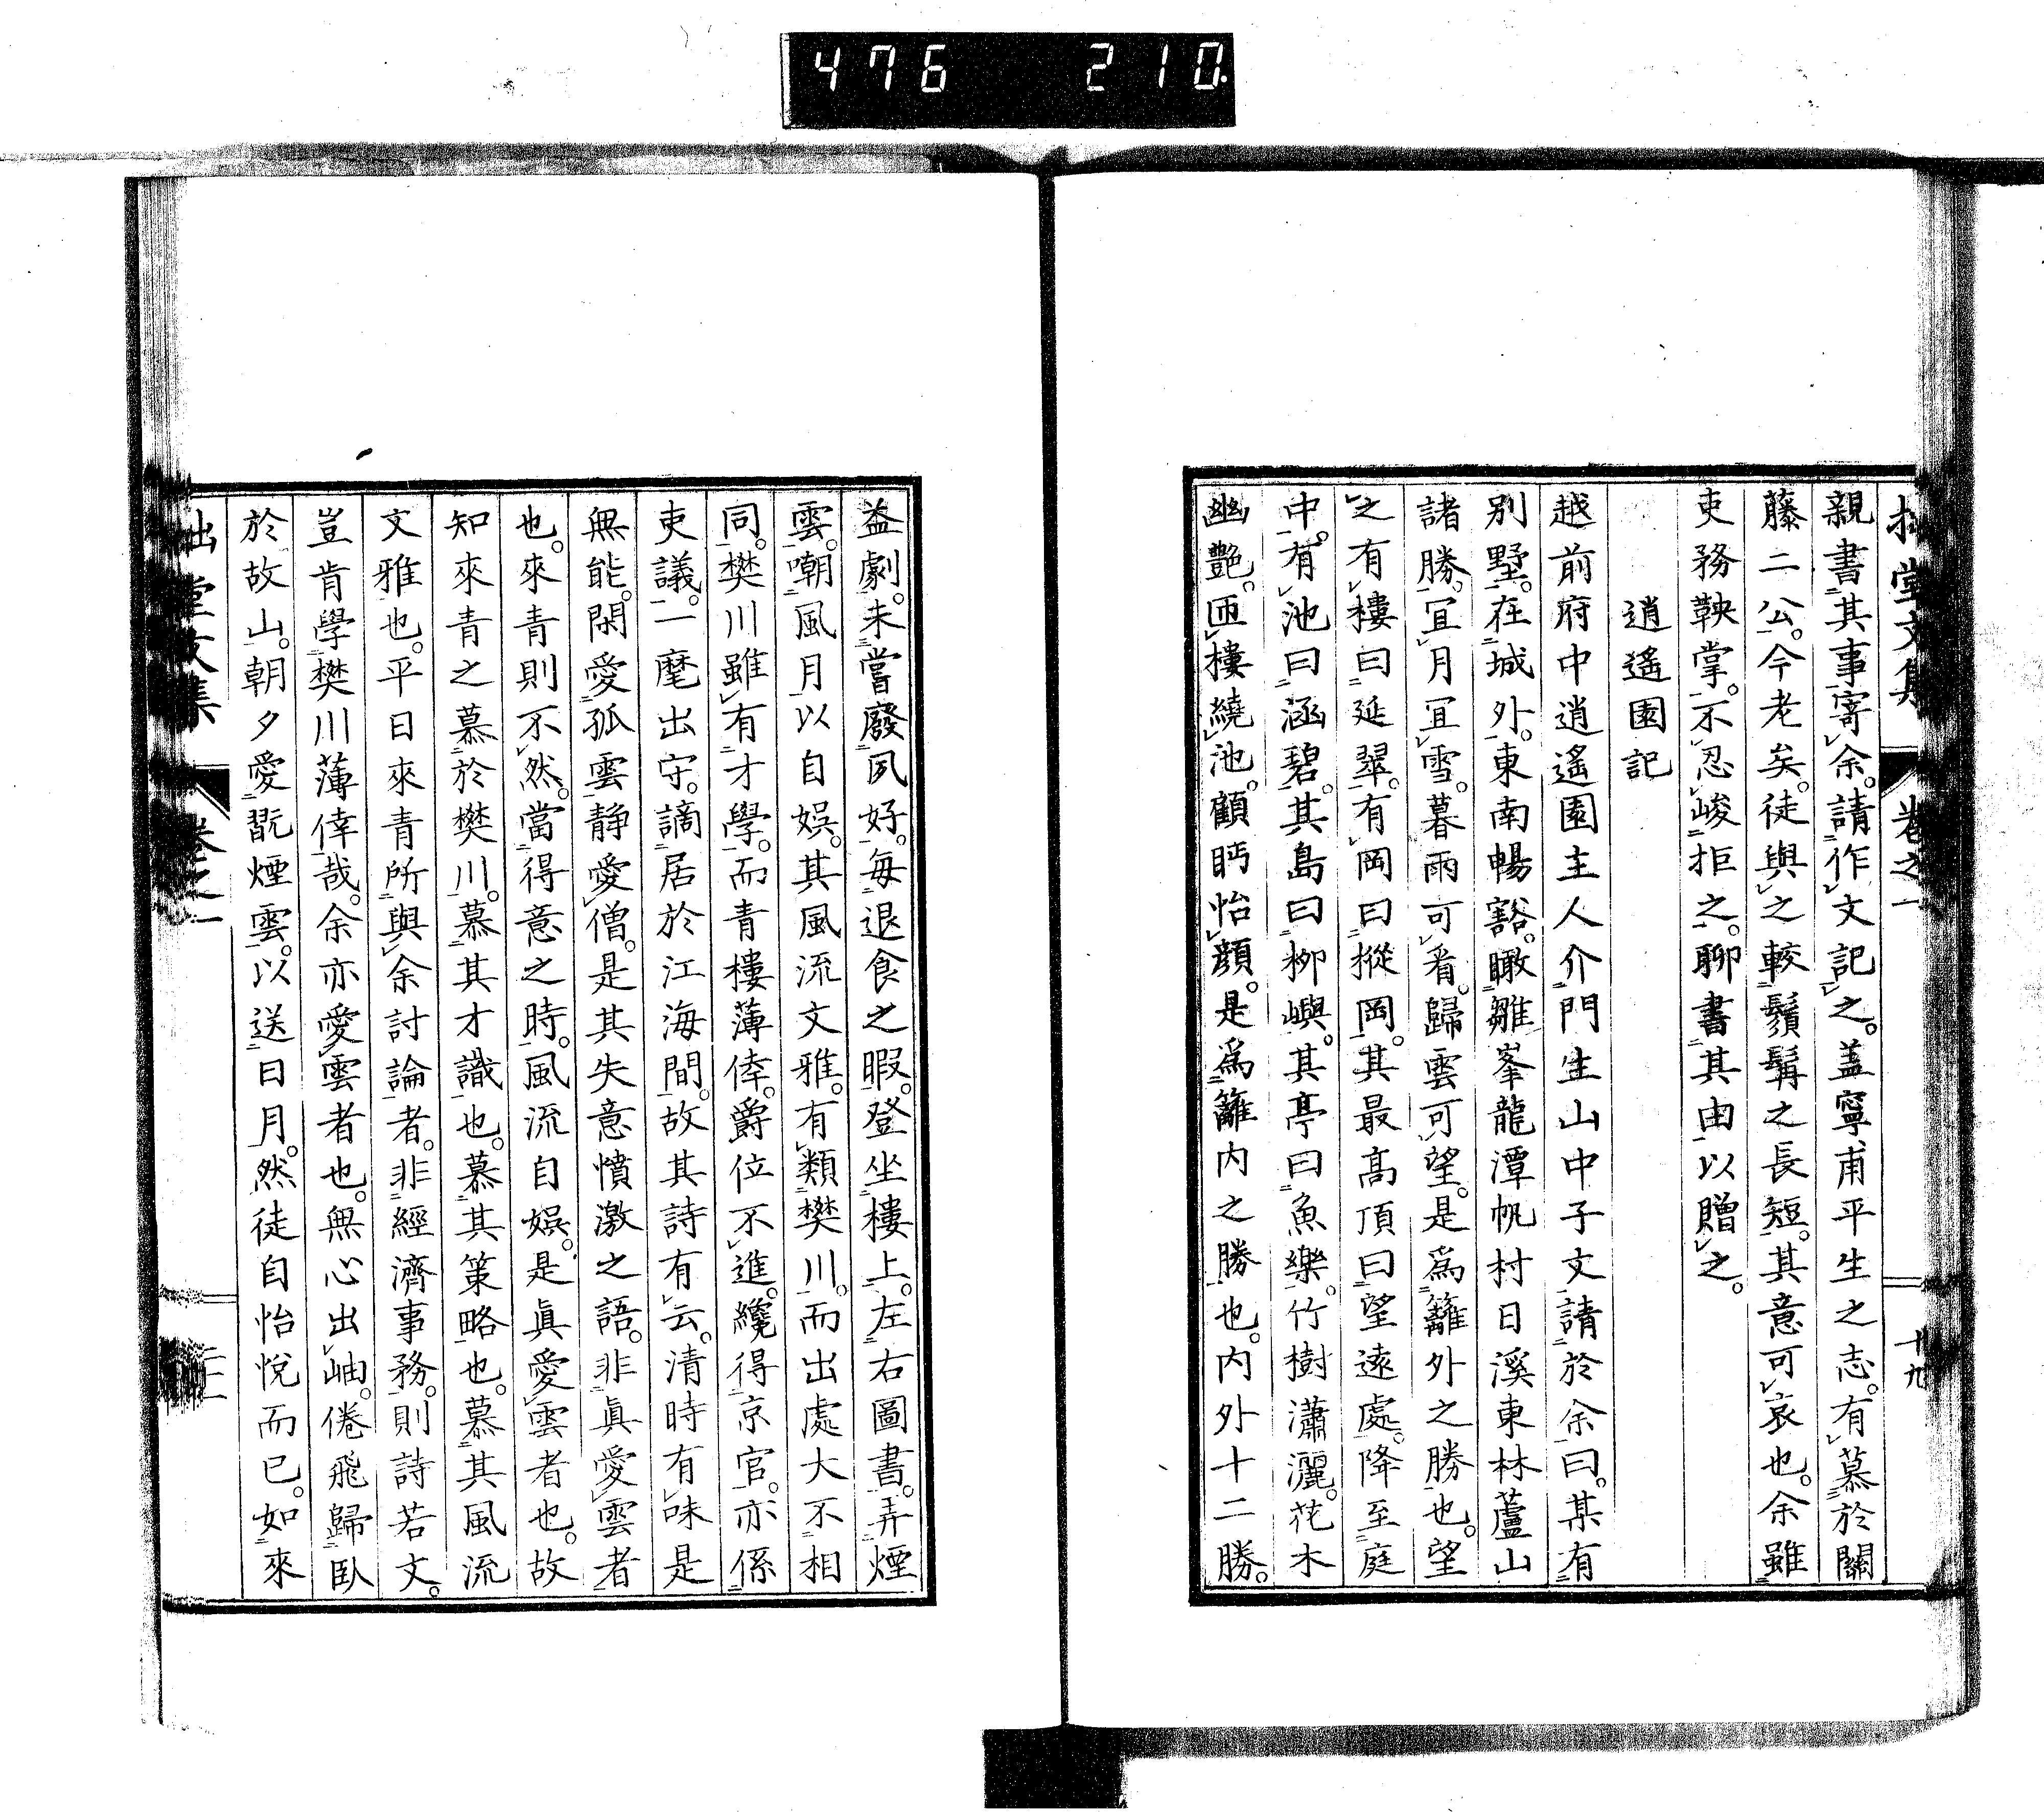 476 210
拙堂文集 卷之一 十九
親書其事寄余。請作文記之。蓋寧甫平生之志。有慕於關
藤二公。今老矣。徒與之較鬚髯之長短。其意可哀也。余雖
吏務鞅掌。不忍峻拒之。聊書其由以贈之。
逍遙園記
越前府中逍遙園主人介門生山中子文請於余曰。某有
別墅。在城外。東南暢豁。瞰雛峯龍潭帆村日溪東林蘆山
諸勝。宜月宜雪。暮雨可看。歸雲可望。是爲籬外之勝也。望
之有樓曰延翠。有岡曰摐岡。其最高頂曰望遠處。降至庭
中。有池曰涵碧。其島曰柳嶼。其亭曰魚樂。竹樹瀟灑。花木
幽艷。匝樓繞池。顧眄怡顏。是爲籬内之勝也。内外十二勝。
益劇。未嘗廢夙好。每退食之暇。登坐樓上。左右圖書。弄煙
雲。嘲風月以自娛。其風流文雅。有類樊川。而出處大不相
同。樊川雖有才學。而青樓薄倖。爵位不進。纔得京官。亦係
吏議。一麾出守。謫居於江海間。故其詩有云。清時有味是
無能。閑愛孤雲靜愛僧。是其失意憤激之語。非眞愛雲者
也。來青則不然。當得意之時。風流自娛。是眞愛雲者也。故
知來青之慕於樊川。慕其才識也。慕其策略也。慕其風流
文雅也。平日來青所與余討論者。非經濟事務。則詩若文。
豈肯學樊川薄倖哉。余亦愛雲者也。無心出岫。倦飛歸臥
於故山。朝夕愛翫煙雲。以送日月。然徒自怡悅而已。如來
拙堂文集 卷之一